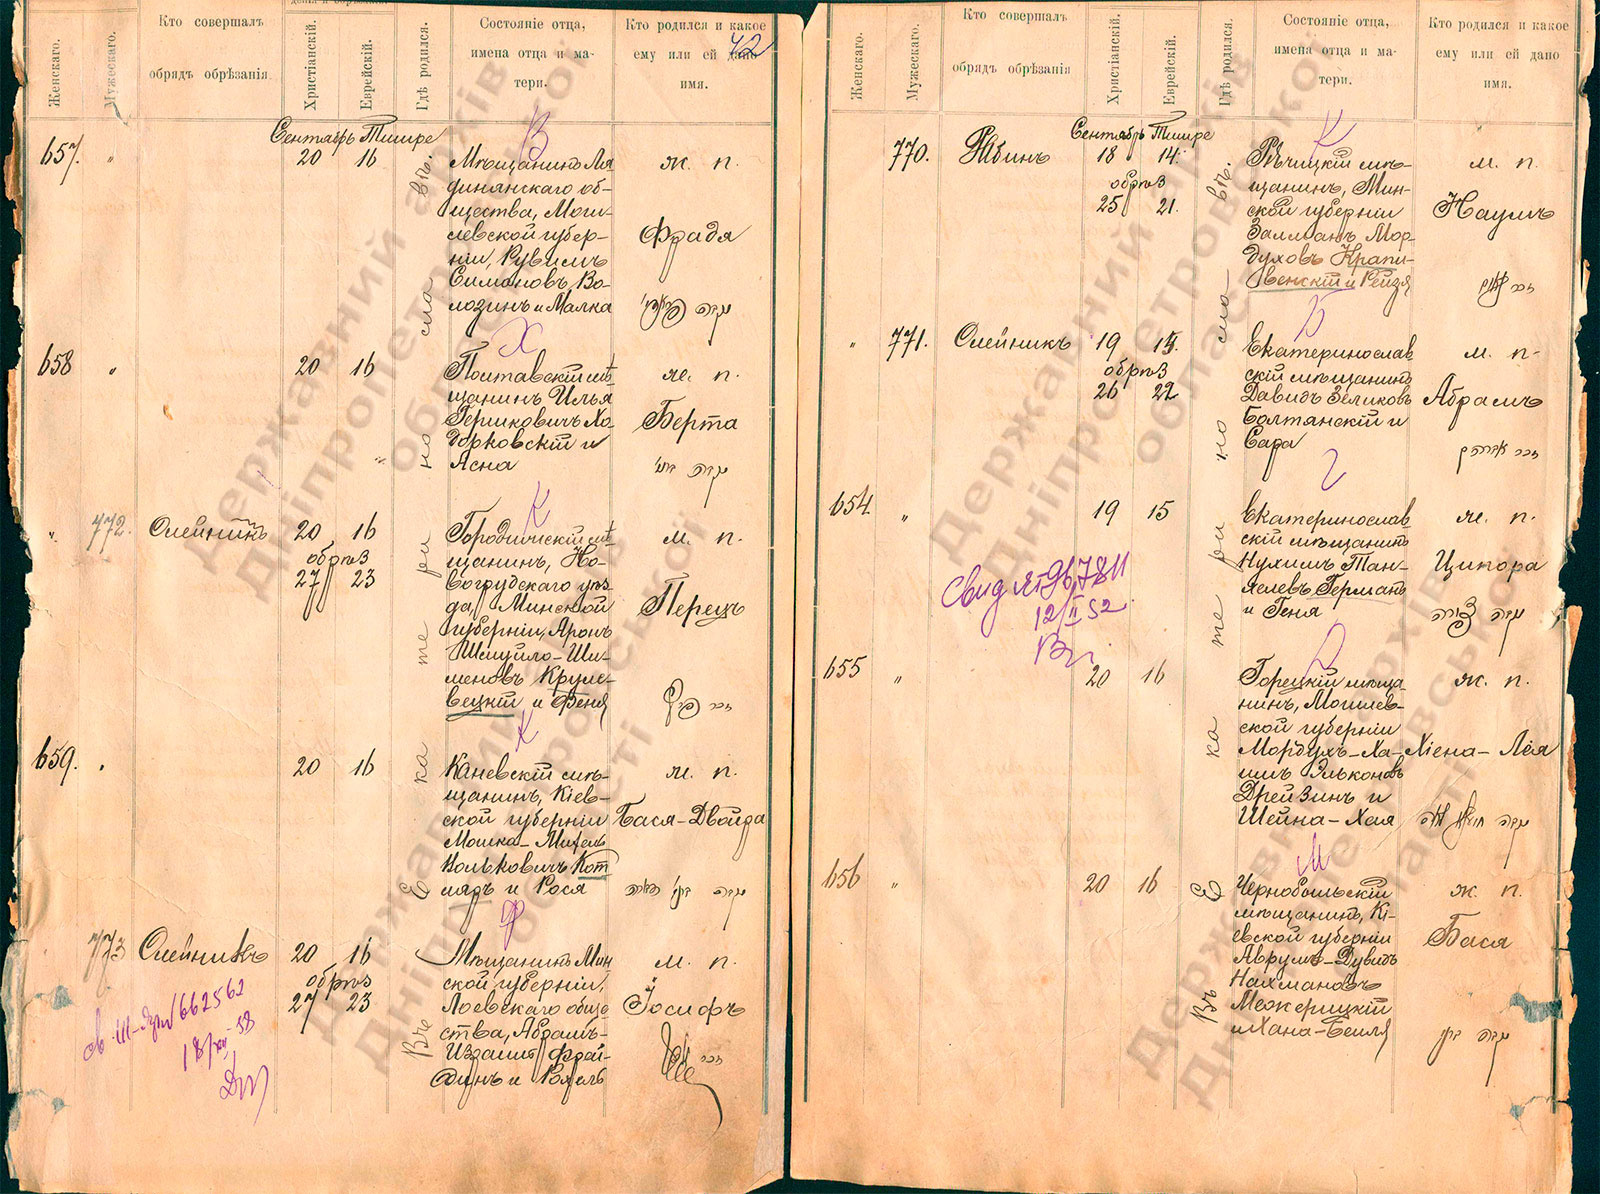 Женскаго.
Мужескаго.
Кто совершалъ
обрядъ обрѣзанія
Христіанскій.
Еврейскій.
Гдѣ родился.
Состояніе отца,
имена отца и ма-
тери.
Кто родился и какое
ему или ей дано
имя.
42
Сентябрь Тишре
657. " 20 16
Мѣщанинъ Ля
динянскаго об-
щества, Моги-
левской губер-
ніи, Рувимъ
Симоновъ Во-
лозинъ и Малка
В
ж. п.
Фрадя
Х
658 " 20 16
Полтавскій мѣ
щанинъ Илья
Гершковичъ Хо-
дорковскій и
Ясна
ж. п.
Берта
К
" 772. Олейникъ 20 16
обрѣз
27 23
Городищскій мѣ
щанинъ, Но-
вогрудскаго уѣз
да, Минской
губерніи, Аронъ
Шмуйло-Ши-
меновъ Круле-
вецкій и Феня
м. п.
Перецъ
К
659. " 20 16
Каневскій мѣ-
щанинъ, Кіев-
ской губерніи
Мошка-Михель
Волькович Кот
лядъ и Рося
ж. п.
Бася-Двойра
Ф
773 Олейникъ 20 16
обрѣз
27 23
Мѣщанинъ Мин
ской губерніи,
Лоевскаго обще
ства, Абрамъ-
Израиль Фрай-
динъ и Рахель
м. п.
Іосифъ
662562
18/XII-58
Въ Екатеринославѣ.
Женскаго.
Мужескаго.
Кто совершалъ
обрядъ обрѣзанія
Христіанскій.
Еврейскій.
Гдѣ родился.
Состояніе отца,
имена отца и ма-
тери.
Кто родился и какое
ему или ей дано
имя.
Сентябрь Тишре
770. Рабинъ 18 14.
обрѣз
25 21.
К
Рѣчицкій мѣ-
щанинъ, Мин-
ской губерніи
Залманъ Мор-
духовъ Крапи-
венскій и Рейзя
м. п.
Наумъ
Б
" 771. Олейникъ 19 15.
обрѣз
26 22
Екатеринослав
скій мѣщанинъ
Давидъ Зеликовъ
Болтянскій и
Сара
м. п.
Абрамъ
Г
654 " 19 15
Екатеринослав
скій мѣщанинъ
Нухимъ Тан-
хелевъ Германъ
и Геня
ж. п.
Ципора
12/II 52
Д
655 " 20 16
Горецкій мѣща
нинъ, Могилев-
ской губерніи
Мордухъ-Ха-
имъ Эльконовъ
Дрейзинъ и
Шейна-Хая
ж. п.
Хіена-Лея
М
656 " 20 16
Чернобыльскій
мѣщанинъ, Кі-
евской губерніи
Аврумъ-Дувидъ
Нахмановъ
Межерицкій
и Хана-Бейля
ж. п.
Бася
Въ Екатеринославѣ.
Державний архів
Дніпропетровської
області